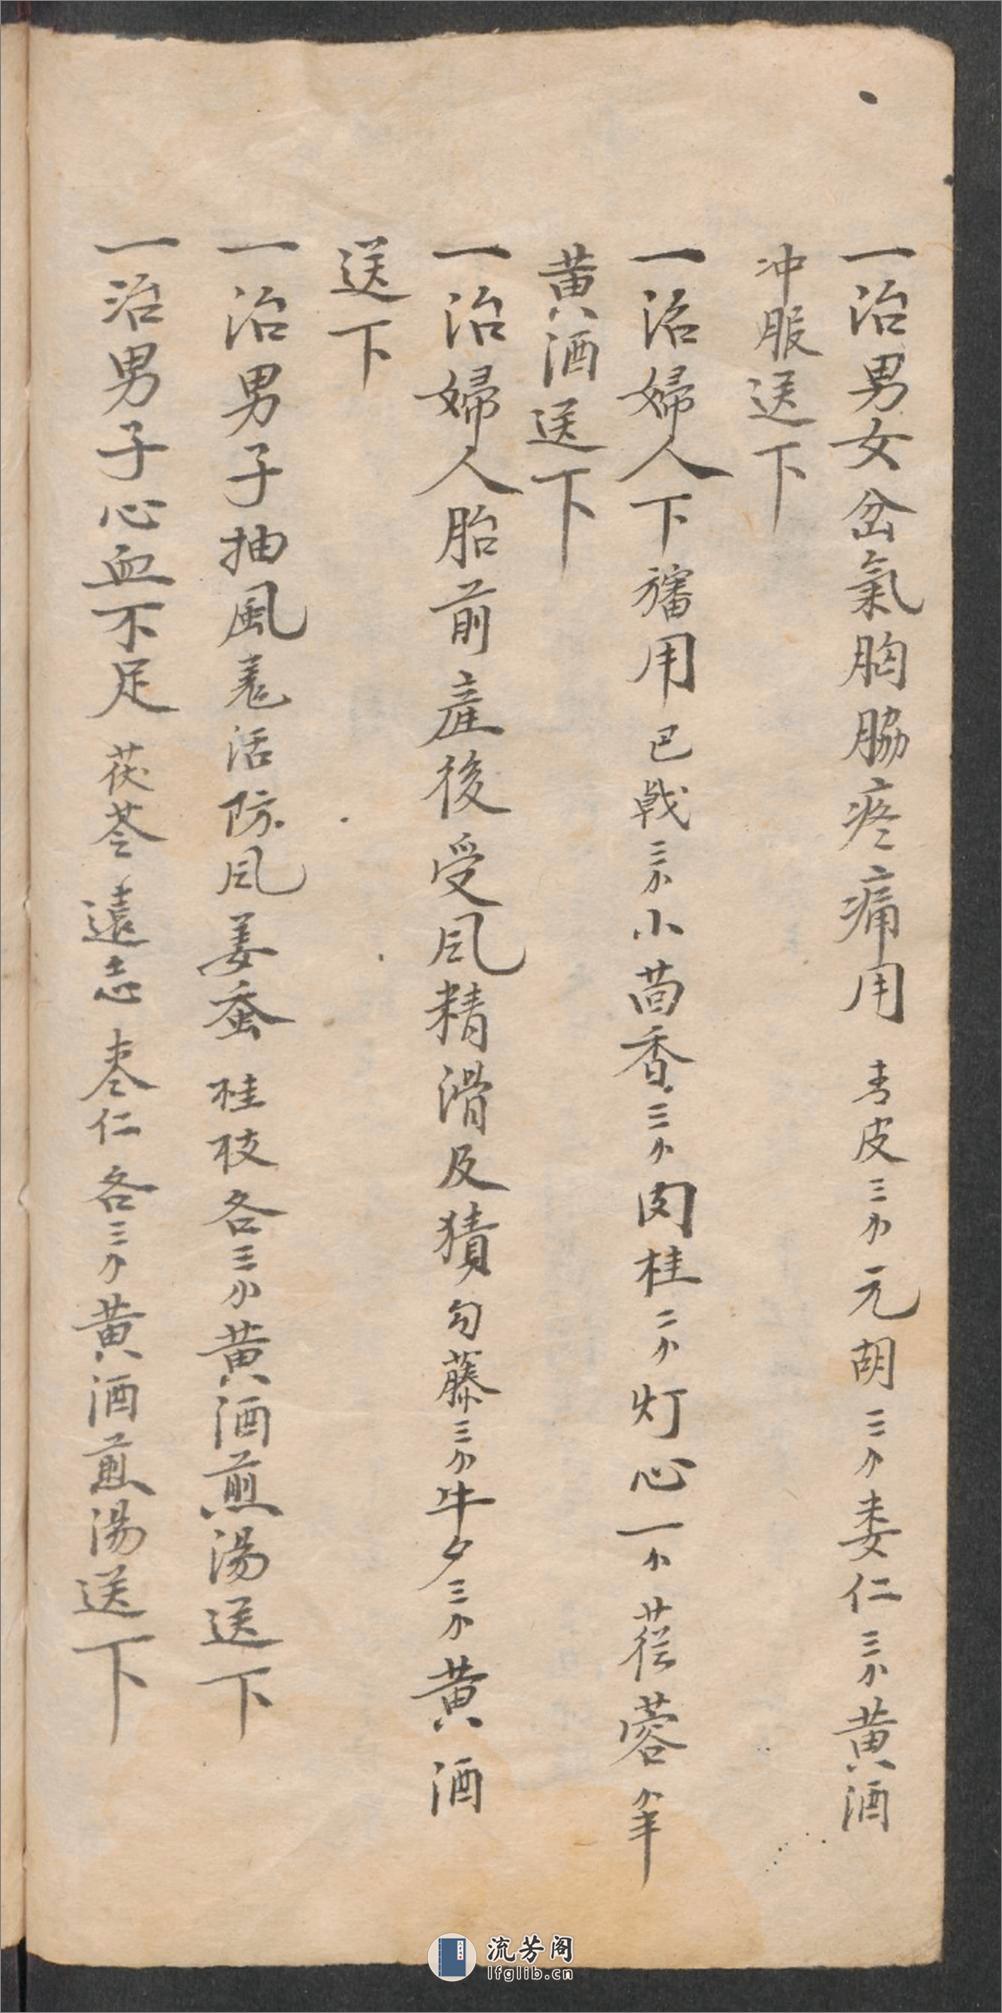 一治男女岔氣胸脇疼痛用青皮三小元胡三小娄仁三小黄酒
冲服送下
一治婦人下㿉用巴戟三小小茴香三小肉桂二小灯心一小蓯蓉小半
黄酒送下
一治婦人胎前産後受风精滑及獖勾藤三小牛夕三小黄酒
送下
一治男子抽風羗活防风姜蚕桂枝各三小黄酒煎湯送下
一治男子心血不足茯苓遠志枣仁各三小黄酒煎湯送下
流芳阁
lfglib.cn